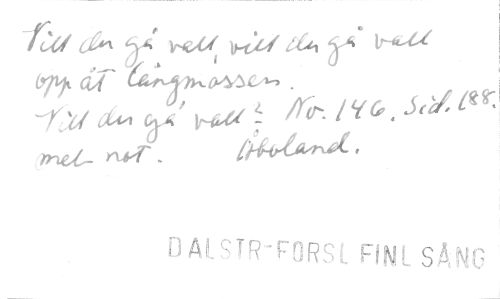 Vill du gå vall, vill du gå vall
opp åt långmossen.
Vill du gå vall? No. 146. Sid. 188.
med not. Åboland.
DALSTR-FORSL FINL SÅNG